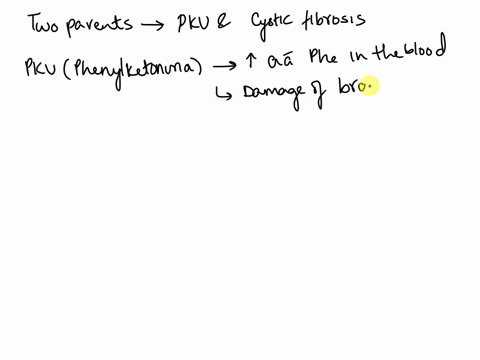 Two parents → PKU & Cystic fibrosis
PKU (Phenylketonuria) → ↑ aā Phe in the blood
↳ Damage of bra